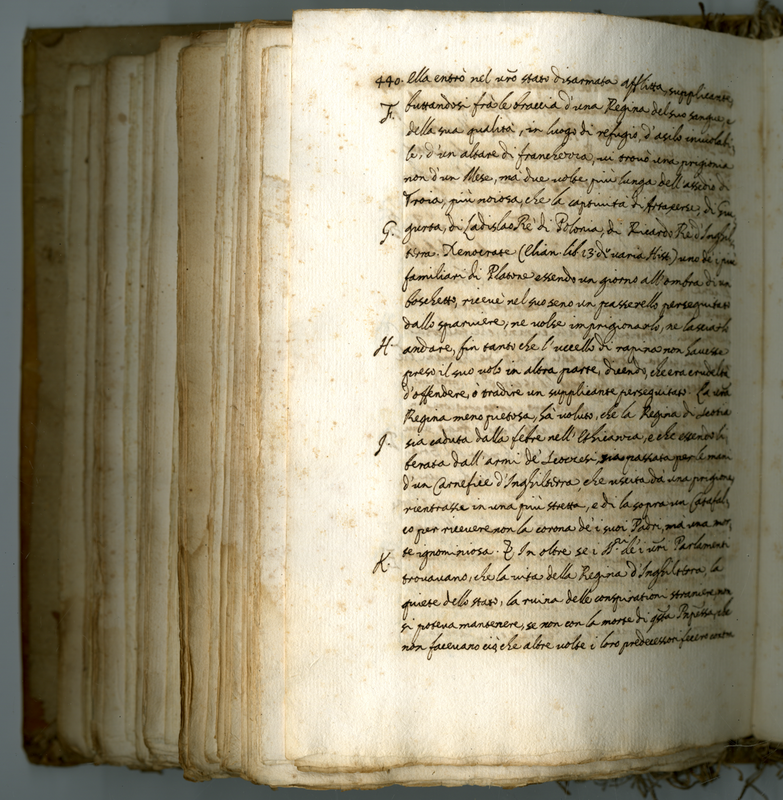 440. Ella entrò nel vr̃o stato disarmata afflitta, supplicante,
F. buttandosi frà le braccia d'una Regina del suo sangue, e
della sua qualità, in luogo di refugio, d'asilo inviolabi-
le, d'un altare di franchezza, vi trovò una prigionia
non d'un Mese, mà due volte più lunga dell'assedio di
Troia, più noiosa, che la captiuità di Artaxerse, di Giu
G. gurta, di Ladislao Rè di Polonia, di Ricardo Rè d'Inghil
terra. Xenocrate (Elian lib 13 de varia Hist) uno de i più
familiari di Platone essendo un giorno all'ombra di un
boschetto, riceuè nel suo seno un passerello perseguitato
dallo sparuiere, ne volse imprigionarlo, ne lasciarlo
H. andare, fin tanto che l'uccello di rapina non hauesse
preso il suo volo in altra parte, dicendo, che era crudeltà
d'offendere, ò tradire un supplicante perseguitato. La vr̃a
Regina meno pietosa, hà voluto, che la Regina di Scotia
J. sia caduta dalla febre nell'Ethicanria, e che essendo li
berata dall'armi de' Scocesi, sia passata per le mani
d'un Carnefice d'Inghilterra, che uscita da una prigione,
rientrasse in una più stretta, e di la sopra un Catafal,
co per riceuere non la corona de' i suoi Padri, ma una mor,
te ignominiosa. Z In oltre se i de' i vr̃i Parlamenti
K. trouauano, che la vita della Regina d'Inghilterra, la
quiete dello stato, la ruina delle conspirationi straniere, non
si poteua mantenere, se non con la morte di q̃sta Pñpessa, che
non faceuano ciò, che altre volte i loro predecessori fecero contra